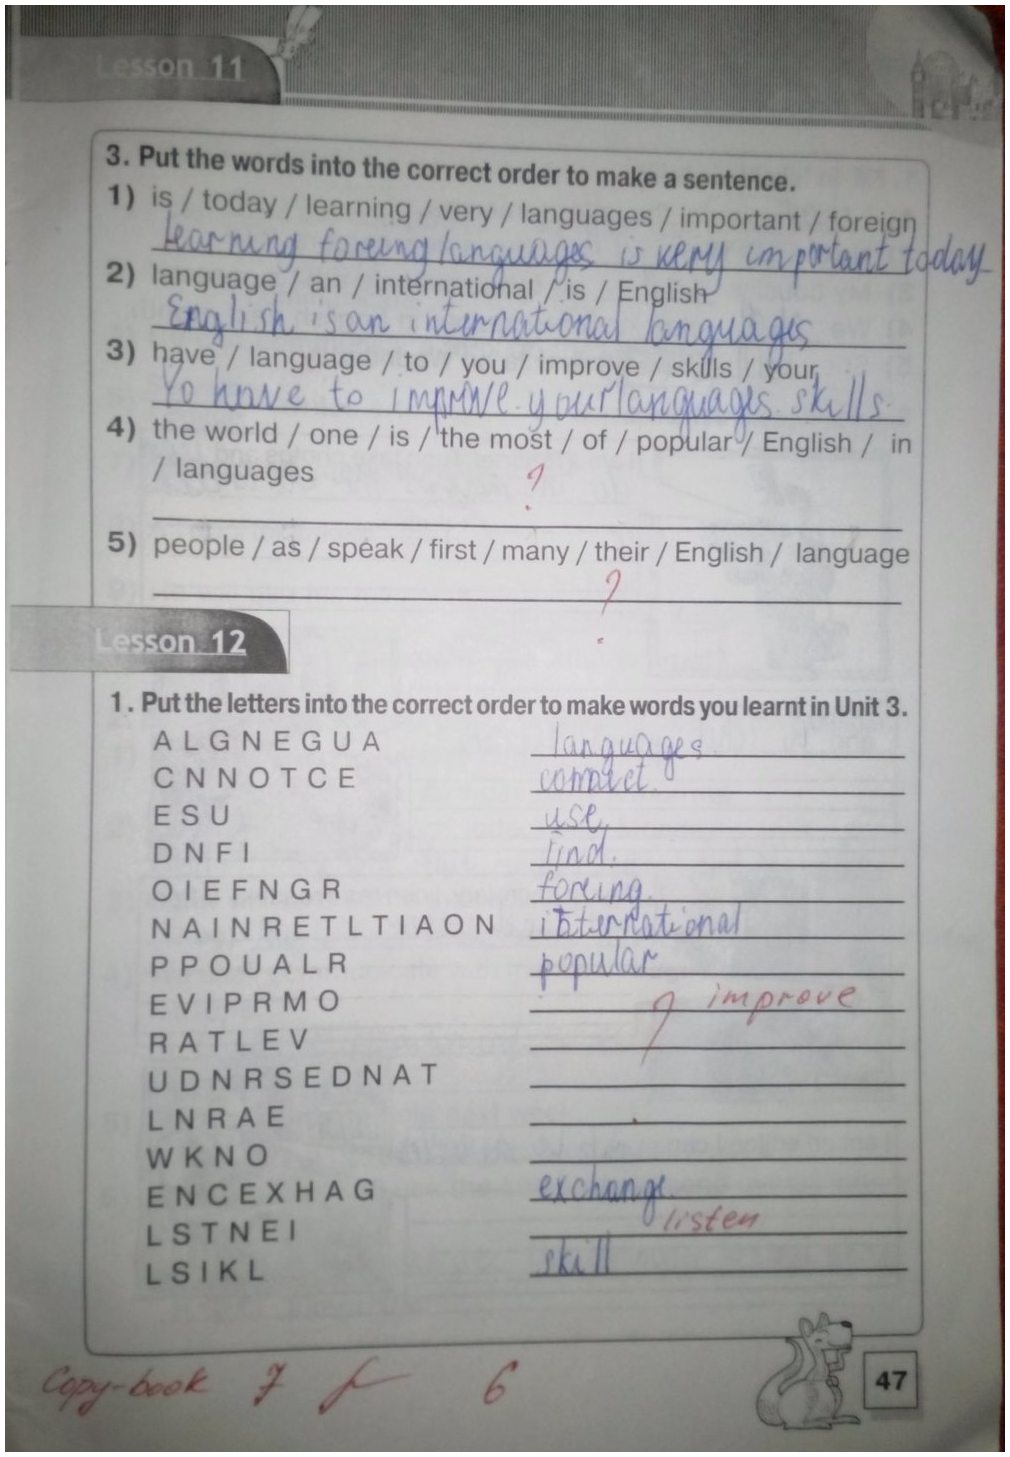 Lesson 11
3. Put the words into the correct order to make a sentence.
1) is / today / learning / very / languages / important / foreign
learning foreing languages is very important today
2) language / an / international / is / English
English is an international languages
3) have / language / to / you / improve / skills / your
Yo have to improve your languages skills.
4) the world / one / is / the most / of / popular / English / in
/ languages
?
5) people / as / speak / first / many / their / English / language
?
Lesson 12
1. Put the letters into the correct order to make words you learnt in Unit 3.
ALGNEGUA languages
CNNOTCE
ESU use
DNFI find.
OIEFNGR foreing.
NAINRETLTIAON international
PPOUALR popular
EVIPRMO ? improve
RATLEV
UDNRSEDNAT
LNRAE
WKNO
ENCEXHAG exchange.
LSTNEI listen
LSIKL skill
Copy-book 7 6
47